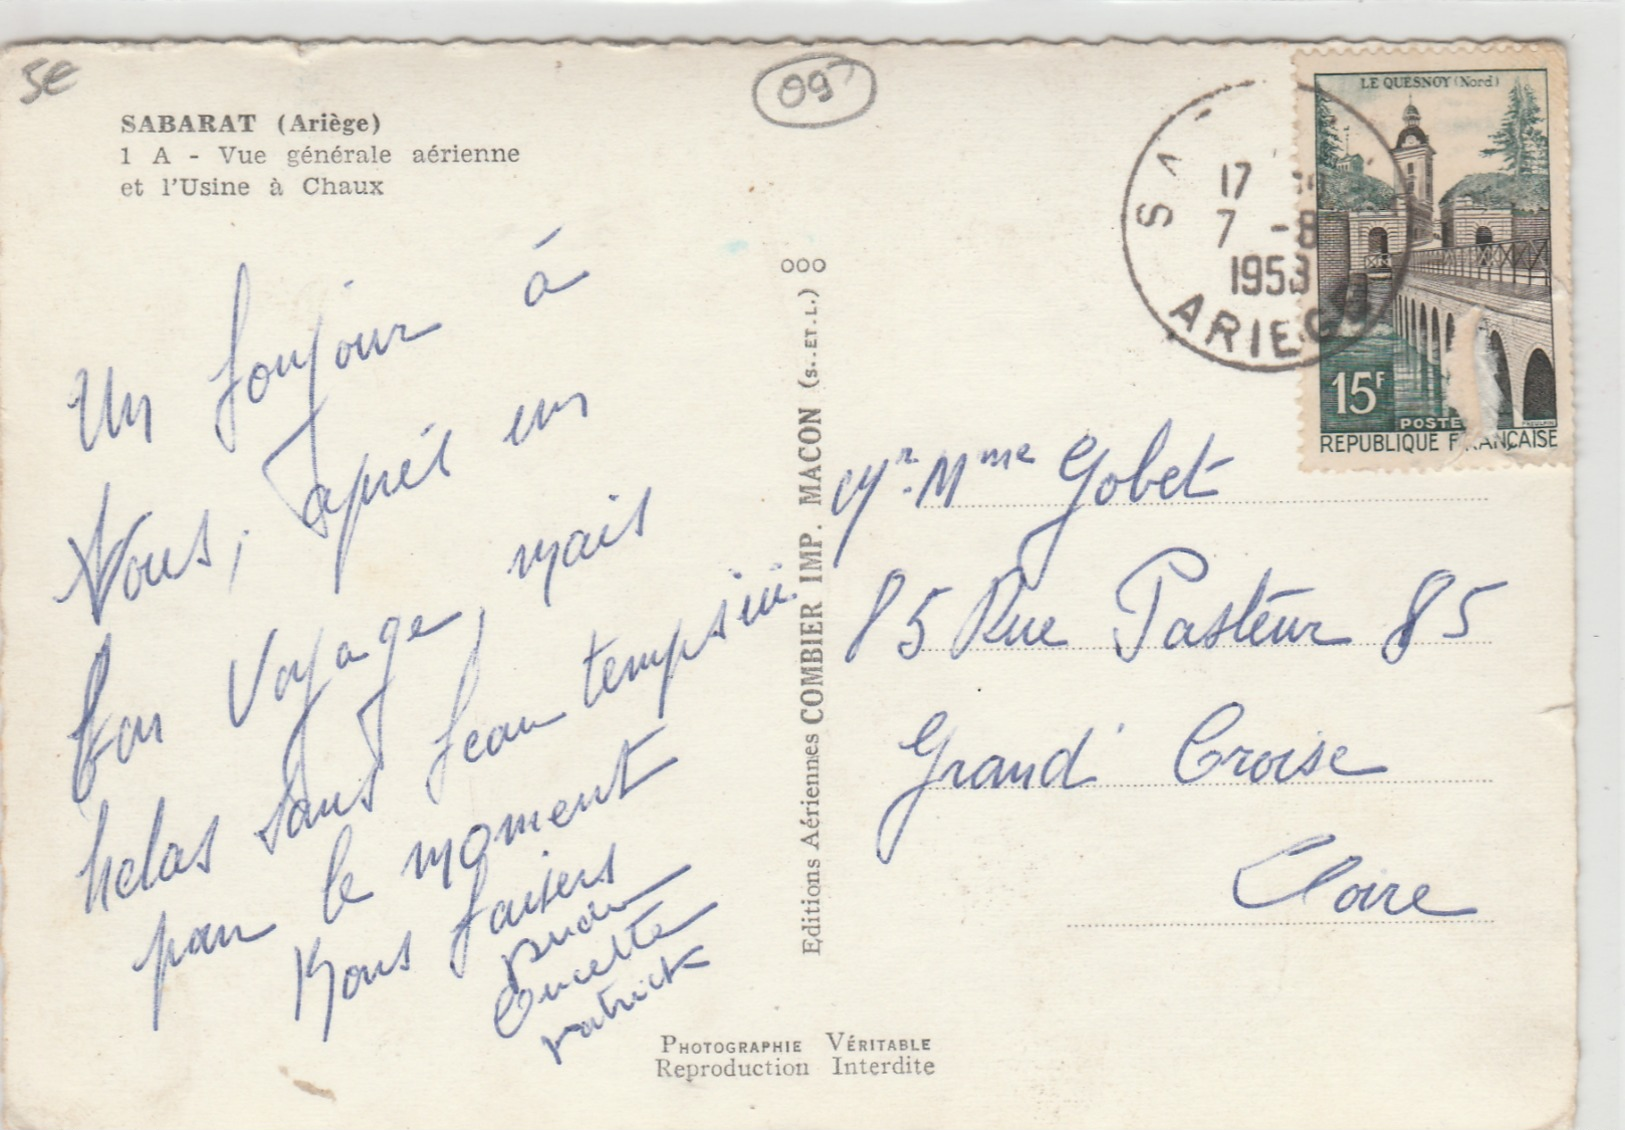 5€
09
SABARAT (Ariège)
1 A - Vue générale aérienne
et l'Usine à Chaux
Un bonjour à
Vous, après un
bon voyage, mais
helas sans beau temps
pour le moment
Bons baisers
Lucette
Patrick
ooo
Editions Aériennes COMBIER IMP. MACON (S. ET. L.)
PHOTOGRAPHIE VÉRITABLE
Reproduction Interdite
SA
17
7 -8
1958
ARIEGE
LE QUESNOY (Nord)
15F
POSTES
REPUBLIQUE FRANÇAISE
Mr. Mme Gobet
85 Rue Pasteur 85
Grand' Croise
Loire